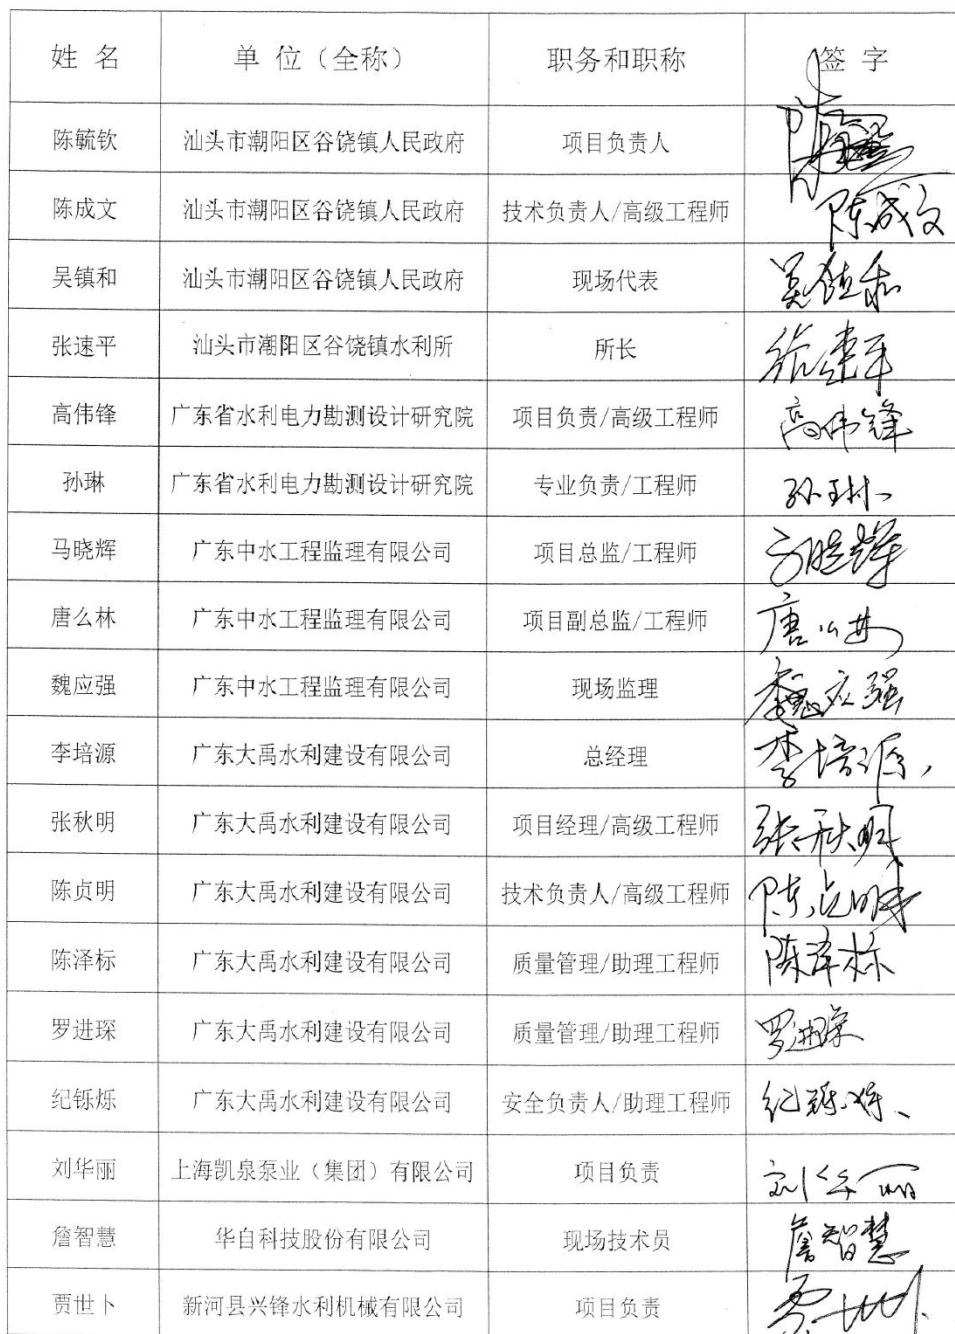 姓 名 单 位（全称） 职务和职称 签 字
陈毓钦 汕头市潮阳区谷饶镇人民政府 项目负责人
陈成文 汕头市潮阳区谷饶镇人民政府 技术负责人/高级工程师 陈成文
吴镇和 汕头市潮阳区谷饶镇人民政府 现场代表 吴镇和
张速平 汕头市潮阳区谷饶镇水利所 所长
高伟锋 广东省水利电力勘测设计研究院 项目负责/高级工程师 高伟锋
孙琳 广东省水利电力勘测设计研究院 专业负责/工程师 孙琳
马晓辉 广东中水工程监理有限公司 项目总监/工程师 马晓辉
唐么林 广东中水工程监理有限公司 项目副总监/工程师 唐么林
魏应强 广东中水工程监理有限公司 现场监理 魏应强
李培源 广东大禹水利建设有限公司 总经理 李培源
张秋明 广东大禹水利建设有限公司 项目经理/高级工程师 张秋明
陈贞明 广东大禹水利建设有限公司 技术负责人/高级工程师 陈贞明
陈泽标 广东大禹水利建设有限公司 质量管理/助理工程师 陈泽标
罗进琛 广东大禹水利建设有限公司 质量管理/助理工程师 罗进琛
纪铄烁 广东大禹水利建设有限公司 安全负责人/助理工程师 纪铄烁
刘华丽 上海凯泉泵业（集团）有限公司 项目负责 刘华丽
詹智慧 华自科技股份有限公司 现场技术员 詹智慧
贾世卜 新河县兴锋水利机械有限公司 项目负责 贾世卜